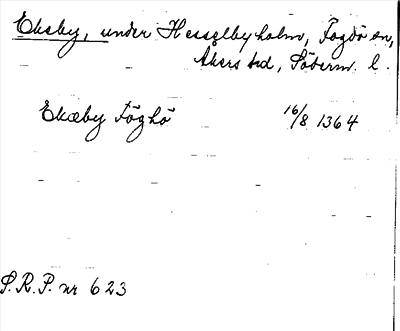 Ekeby, under Hesselbyholm, Fogdö sn,
Åkers hd, Söderm. l.
Ekæby Föghö 16/8 1364
S.R.P. nr 623